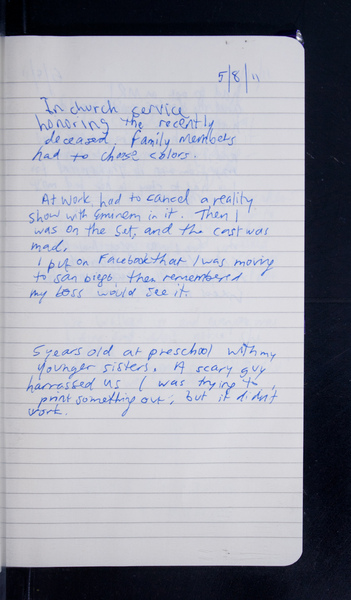 5/8/11
In church service
honoring the recently
deceased, family members
had to choose colors.
At work, had to cancel a reality
show with Eminem in it. Then I
was on the set, and the cast was
mad.
I put on Facebook that I was moving
to San Diego then remembered
my boss would see it.
5 years old at preschool with my
younger sisters. A scary guy
harrassed us I was trying to
print something out, but it didn't
work.